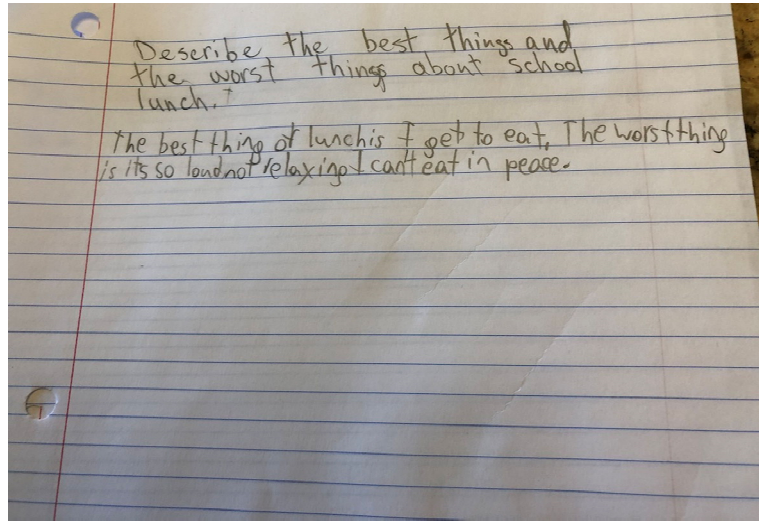 Describe the best things and
the worst things about school
lunch.
The best thing of lunch is I get to eat. The worst thing
is its so loud not relaxing I can't eat in peace.